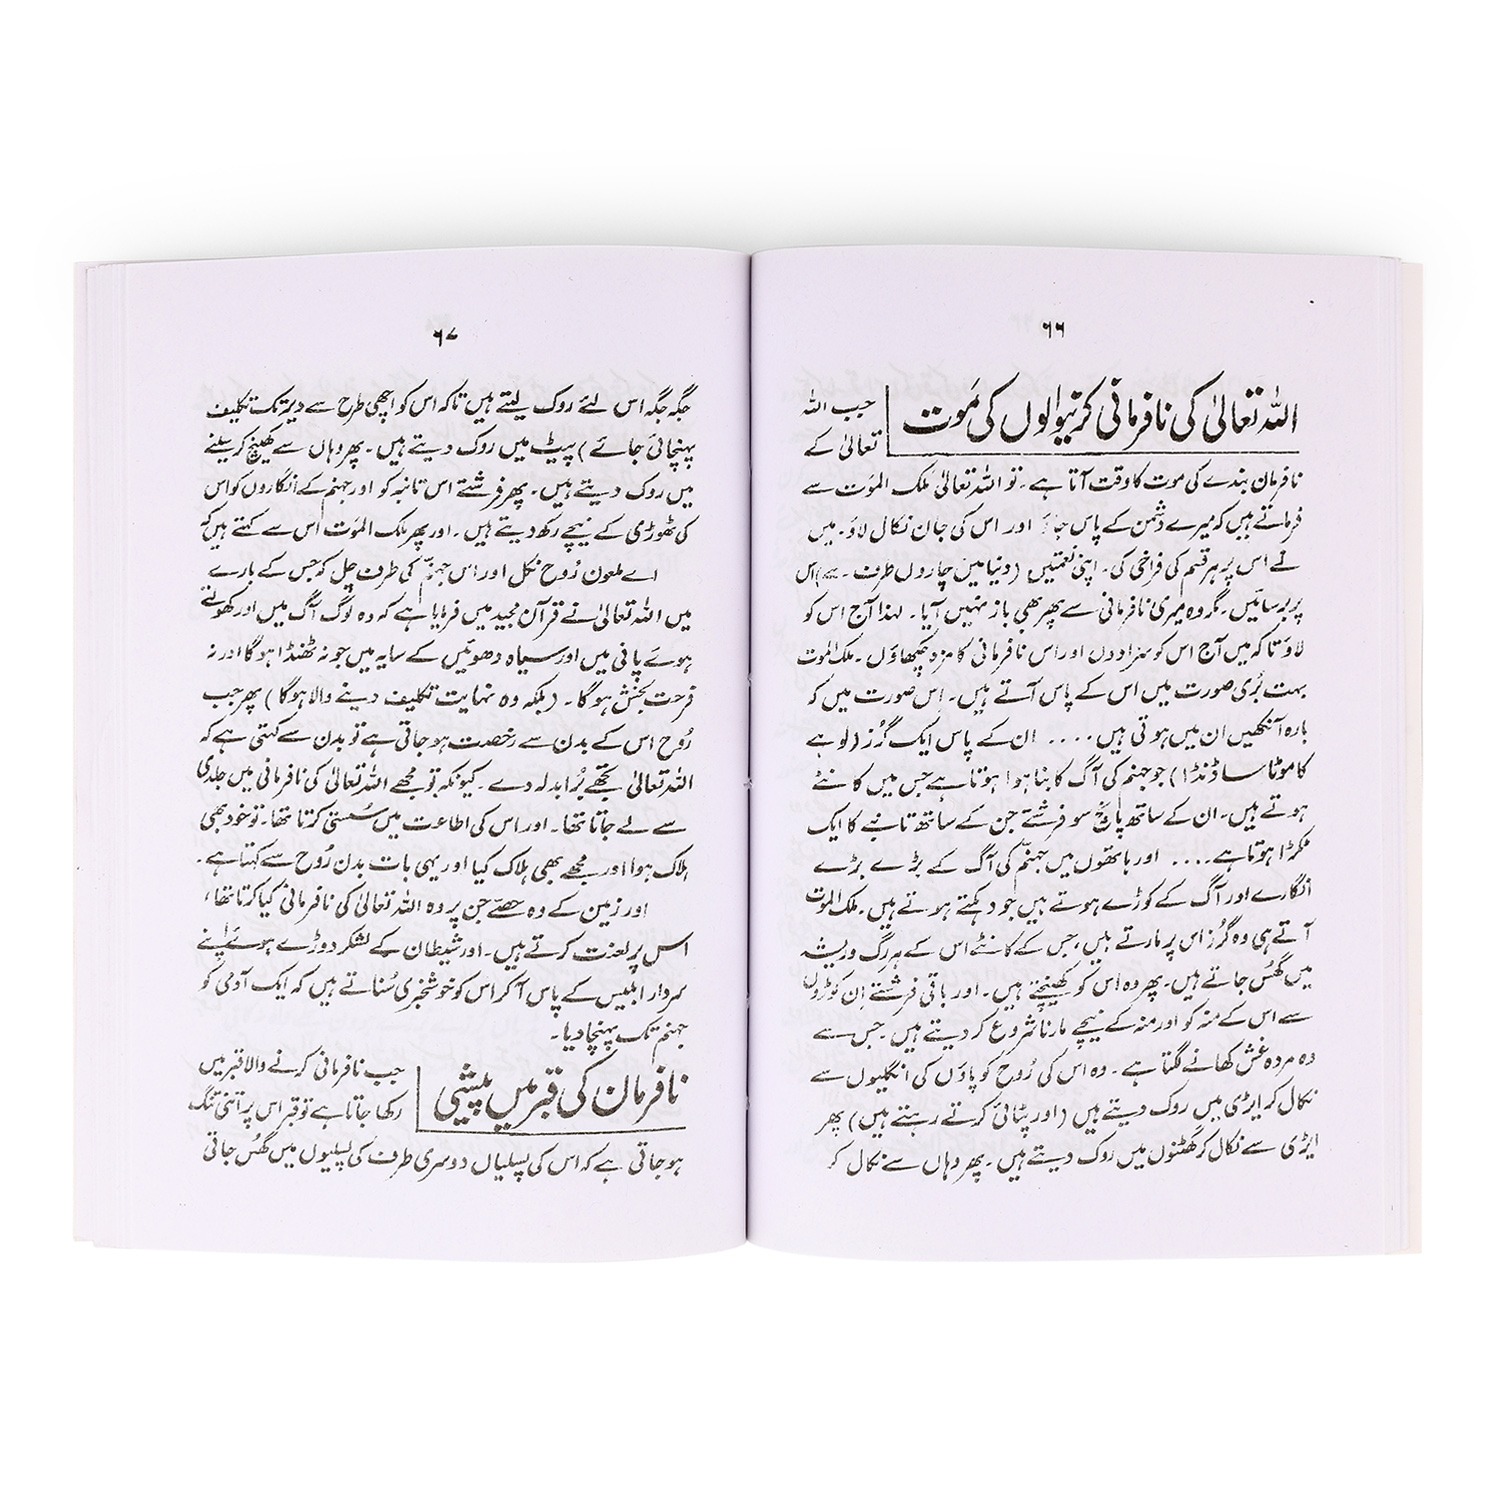 ۶۶
اللہ تعالیٰ کی نافرمانی کرنیوالوں کی مَوت
جب اللہ
تعالیٰ کے
نافرمان بندے کی موت کا وقت آتا ہے۔ تو اللہ تعالیٰ ملک الموت سے
فرماتے ہیں کہ میرے دشمن کے پاس جاؤ اور اس کی جان نکال لاؤ۔ میں
نے اس پر ہر قسم کی فراخی کی۔ اپنی نعمتیں (دنیا میں چاروں طرف سے) اس
پر برسائیں۔ مگر وہ میری نافرمانی سے پھر بھی باز نہیں آیا۔ لہذا آج اس کو
لاؤ تاکہ میں آج اس کو سزا دوں اور اس نافرمانی کا مزہ چکھاؤں۔ ملک الموت
بہت بُری صورت میں اس کے پاس آتے ہیں۔ اس صورت میں کہ
بارہ آنکھیں ان میں ہوتی ہیں .... ان کے پاس ایک گُرز (لوہے
کا موٹا سا ڈنڈا) جو جہنم کی آگ کا بنا ہوا ہوتا ہے جس میں کانٹے
ہوتے ہیں۔ ان کے ساتھ پانچ سو فرشتے جن کے ساتھ تانبے کا ایک
ٹکڑا ہوتا ہے .... اور ہاتھوں میں جہنم کی آگ کے بڑے بڑے
انگارے اور آگ کے کوڑے ہوتے ہیں جو دہکتے ہوتے ہیں۔ ملک الموت
آتے ہی وہ گُرز اس پر مارتے ہیں، جس کے کانٹے اس کے ہر رگ و ریشہ
میں گھُس جاتے ہیں۔ پھر وہ اس کو کھینچتے ہیں۔ اور باقی فرشتے اِن کوڑوں
سے اس کے منہ کو اور منہ کے نیچے مارنا شروع کر دیتے ہیں۔ جس سے
وہ مردہ غش کھانے لگتا ہے۔ وہ اس کی رُوح کو پاؤں کی انگلیوں سے
نکال کر ایڑی میں روک دیتے ہیں (اور پٹائی کرتے رہتے ہیں) پھر
ایڑی سے نکال کر گھٹنوں میں روک دیتے ہیں۔ پھر وہاں سے نکال کر
۶۷
جگہ جگہ اس لئے روک لیتے ہیں تاکہ اس کو اچھی طرح سے دیر تک تکلیف
پہنچائی جائے) پیٹ میں روک دیتے ہیں۔ پھر وہاں سے کھینچ کر سینے
میں روک دیتے ہیں۔ پھر فرشتے اس تانبہ کو اور جہنم کے انگاروں کو اس
کی ٹھوڑی کے نیچے رکھ دیتے ہیں۔ اور پھر ملک الموت اس سے کہتے ہیں کہ
اے ملعون رُوح نکل اور اس جہنم کی طرف چل کہ جس کے بارے
میں اللہ تعالیٰ نے قرآن مجید میں فرمایا ہے کہ وہ لوگ آگ میں اور کھولتے
ہوئے پانی میں اور سیاہ دھوئیں کے سایہ میں جو نہ ٹھنڈا ہوگا اور نہ
فرحت بخش ہوگا۔ (بلکہ وہ نہایت تکلیف دینے والا ہوگا) پھر جب
رُوح اس کے بدن سے رخصت ہو جاتی ہے تو بدن سے کہتی ہے کہ
اللہ تعالیٰ تجھے بُرا بدلہ دے۔ کیونکہ تو مجھے اللہ تعالیٰ کی نافرمانی میں جلدی
سے لے جاتا تھا۔ اور اس کی اطاعت میں سُستی کرتا تھا۔ تو خود بھی
ہلاک ہوا اور مجھے بھی ہلاک کیا اور یہی بات بدن رُوح سے کہتا ہے۔
اور زمین کے وہ حصے جن پر وہ اللہ تعالیٰ کی نافرمانی کیا کرتا تھا،
اس پر لعنت کرتے ہیں۔ اور شیطان کے لشکر دوڑے ہوئے اپنے
سردار ابلیس کے پاس آکر اس کو خوشخبری سُناتے ہیں کہ ایک آدمی کو
جہنم تک پہنچا دیا۔
نافرمان کی قبر میں پیشی
جب نافرمانی کرنے والا قبر میں
رکھا جاتا ہے تو قبر اس پر اتنی تنگ
ہو جاتی ہے کہ اس کی پسلیاں دوسری طرف کی پسلیوں میں گھُس جاتی